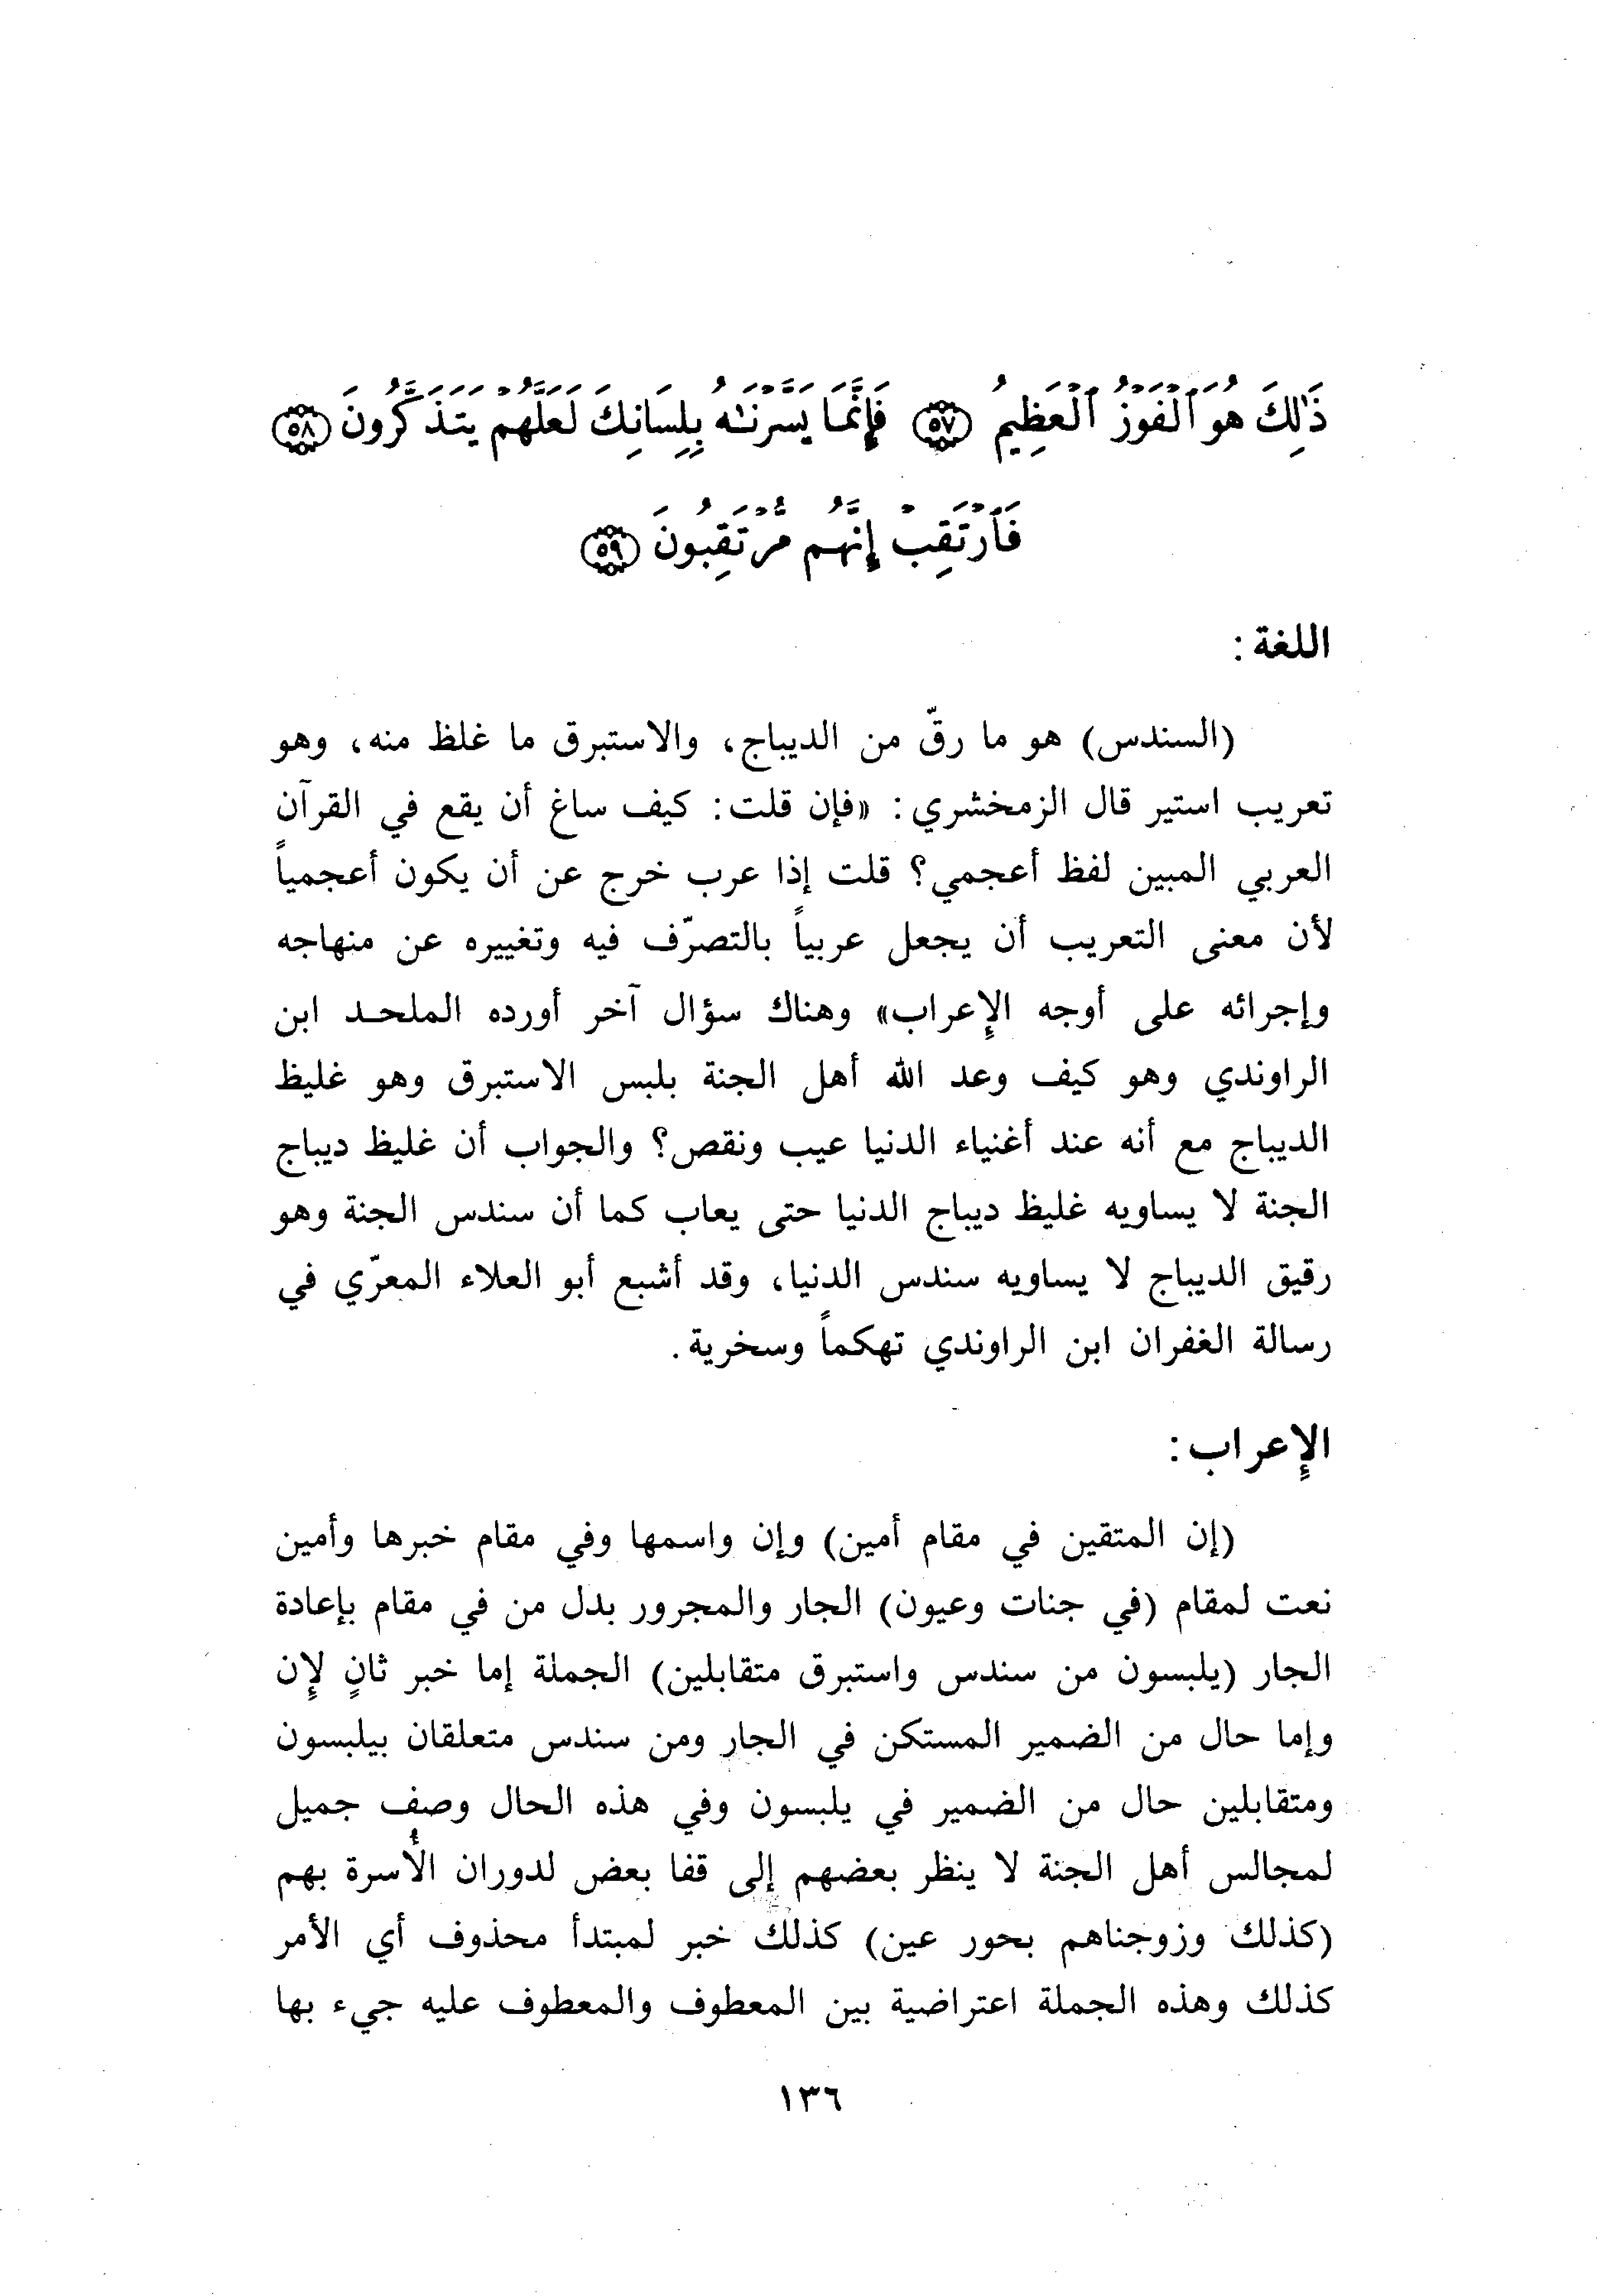 ذَٰلِكَ هُوَ ٱلْفَوْزُ ٱلْعَظِيمُ ﴿٥٧﴾ فَإِنَّمَا يَسَّرْنَٰهُ بِلِسَانِكَ لَعَلَّهُمْ يَتَذَكَّرُونَ ﴿٥٨﴾
فَٱرْتَقِبْ إِنَّهُم مُّرْتَقِبُونَ ﴿٥٩﴾
اللغة :
(السندس) هو ما رقّ من الديباج، والاستبرق ما غلظ منه، وهو
تعريب استير قال الزمخشري: «فإن قلت: كيف ساغ أن يقع في القرآن
العربي المبين لفظ أعجمي؟ قلت إذا عرب خرج عن أن يكون أعجمياً
لأن معنى التعريب أن يجعل عربياً بالتصرّف فيه وتغييره عن منهاجه
وإجرائه على أوجه الإعراب» وهناك سؤال آخر أورده الملحد ابن
الراوندي وهو كيف وعد الله أهل الجنة بلبس الاستبرق وهو غليظ
الديباج مع أنه عند أغنياء الدنيا عيب ونقص؟ والجواب أن غليظ ديباج
الجنة لا يساويه غليظ ديباج الدنيا حتى يعاب كما أن سندس الجنة وهو
رقيق الديباج لا يساويه سندس الدنيا، وقد أشبع أبو العلاء المعرّي في
رسالة الغفران ابن الراوندي تهكماً وسخرية.
الإعراب :
(إن المتقين في مقام أمين) وإن واسمها وفي مقام خبرها وأمين
نعت لمقام (في جنات وعيون) الجار والمجرور بدل من في مقام بإعادة
الجار (يلبسون من سندس واستبرق متقابلين) الجملة إما خبر ثانٍ لإن
وإما حال من الضمير المستكن في الجار ومن سندس متعلقان بيلبسون
ومتقابلين حال من الضمير في يلبسون وفي هذه الحال وصف جميل
لمجالس أهل الجنة لا ينظر بعضهم إلى قفا بعض لدوران الأُسرة بهم
(كذلك وزوجناهم بحور عين) كذلك خبر لمبتدأ محذوف أي الأمر
كذلك وهذه الجملة اعتراضية بين المعطوف والمعطوف عليه جيء بها
١٣٦